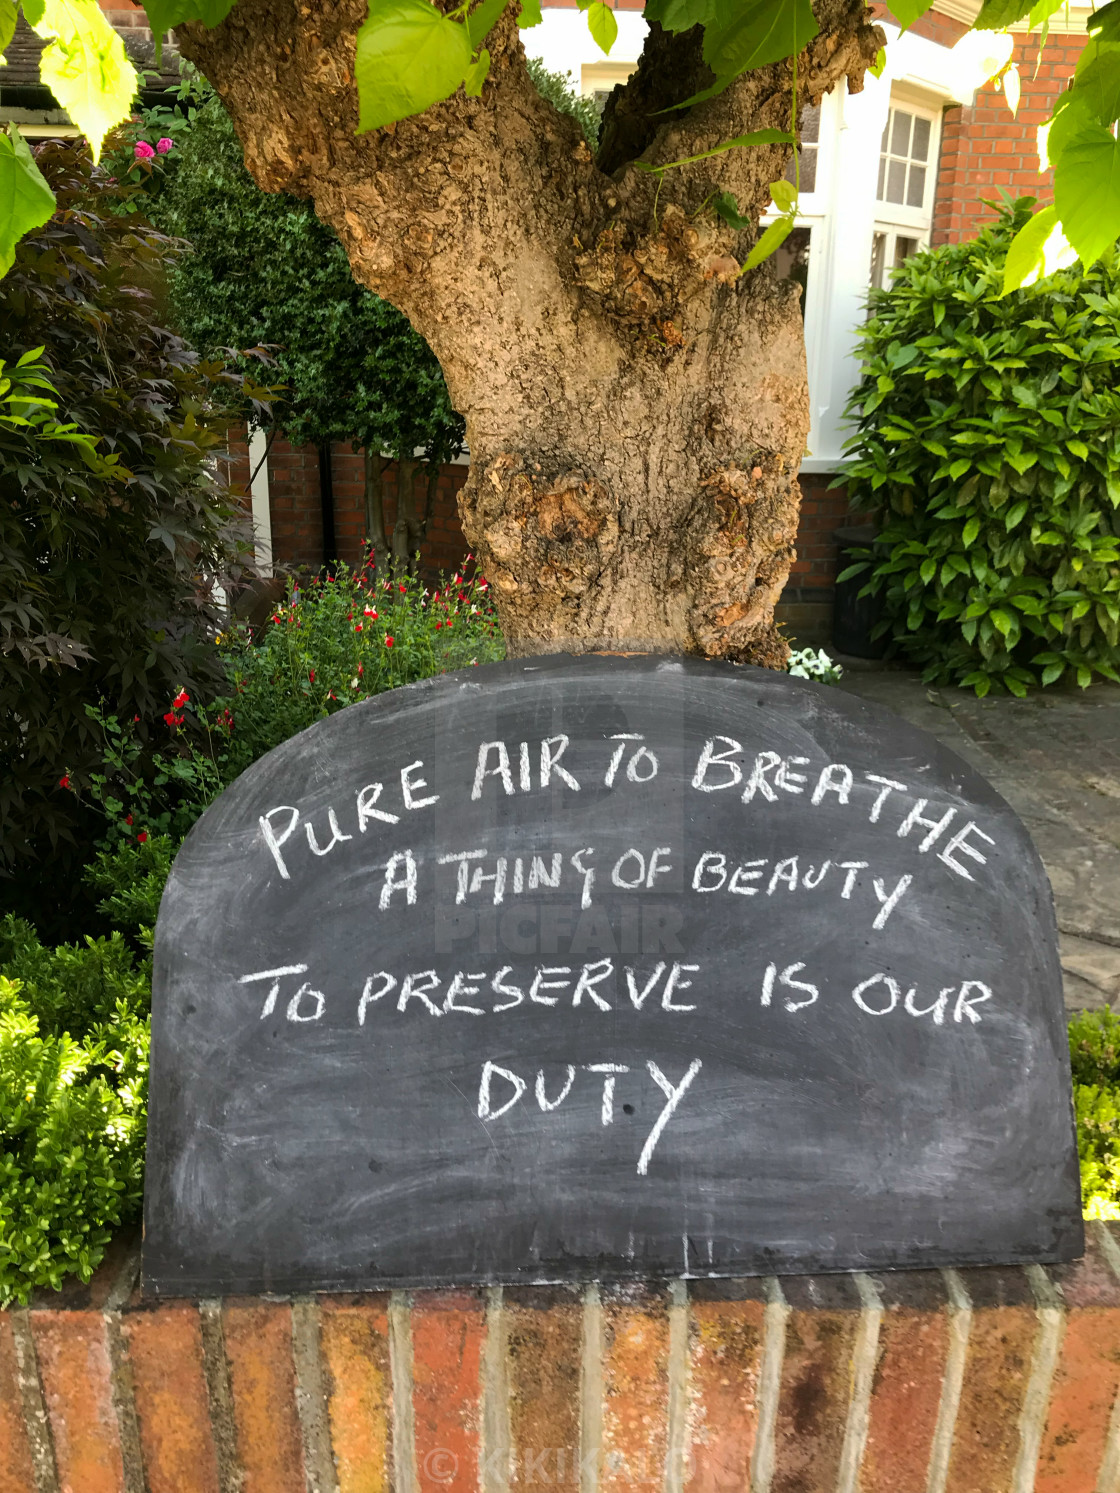 PURE AIR TO BREATHE
A THING OF BEAUTY
TO PRESERVE IS OUR
DUTY
PICFAIR
© KIKIKALO